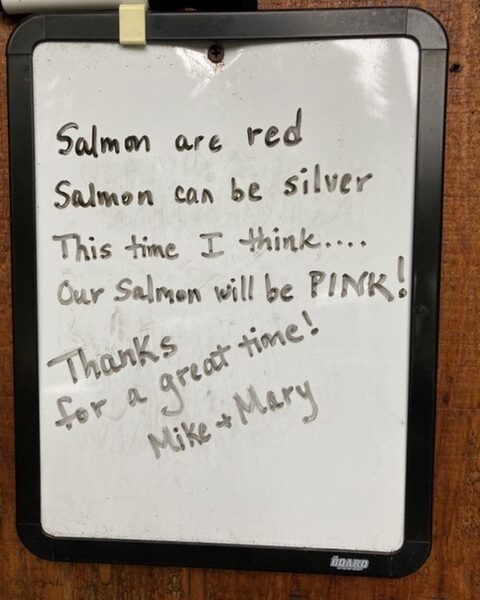 Salmon are red
Salmon can be silver
This time I think....
Our Salmon will be PINK!
Thanks
for a great time!
Mike + Mary
BOARD